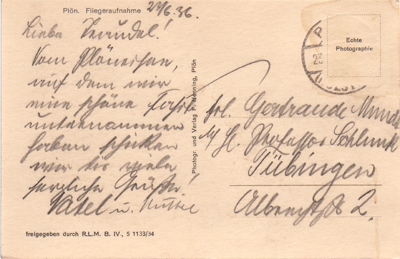 Plön. Fliegeraufnahme 24/6.36.
Liebe Traudel!
Vom Plönersee,
auf dem wir
eine schöne Fahrt
unternommen
haben schicken
wir dir viele
herzliche Grüße!
Vatel u. Mutter
Photogr. und Verlag Plön
Echte
Photographie
Frl. Gertraude
Professor Schlunk
Tübingen
Albrechtstr. 2.
freigegeben durch R.L.M. B. IV., 5 1133/34